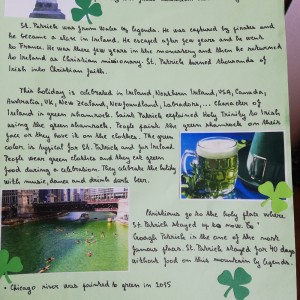 St. Patrick was from Wales by legends. He was captured by pirates and
he became a slave in Ireland. He escaped after few years and he went
to France. He was there few years in the monastery and then he returned
to Ireland as Christian missionary. St. Patrick turned thousands of
Irish into Christian faith.
This holiday is celebrated in Ireland, Northern Ireland, USA, Canada,
Australia, UK, New Zealand, Newfoundland, Labradora,... Character of
Ireland is green shamrock. Saint Patrick explained Holy Trinity to Irish
using the green shamrock. People paint the green shamrock on their
face or they have it on the clothes. The green
color is typical for St. Patrick and for Ireland.
People wear green clothes and they eat green
food during a celebration. They celebrate the holiday
with music, dance and drink dark beer.
Christians go to the holy place where
St. Patrick stayed up to now. To
Croagh Patrick is the one of the most
famous places. St. Patrick stayed for 40 days
without food on this mountain by legends.
• Chicago river was painted to green in 2015